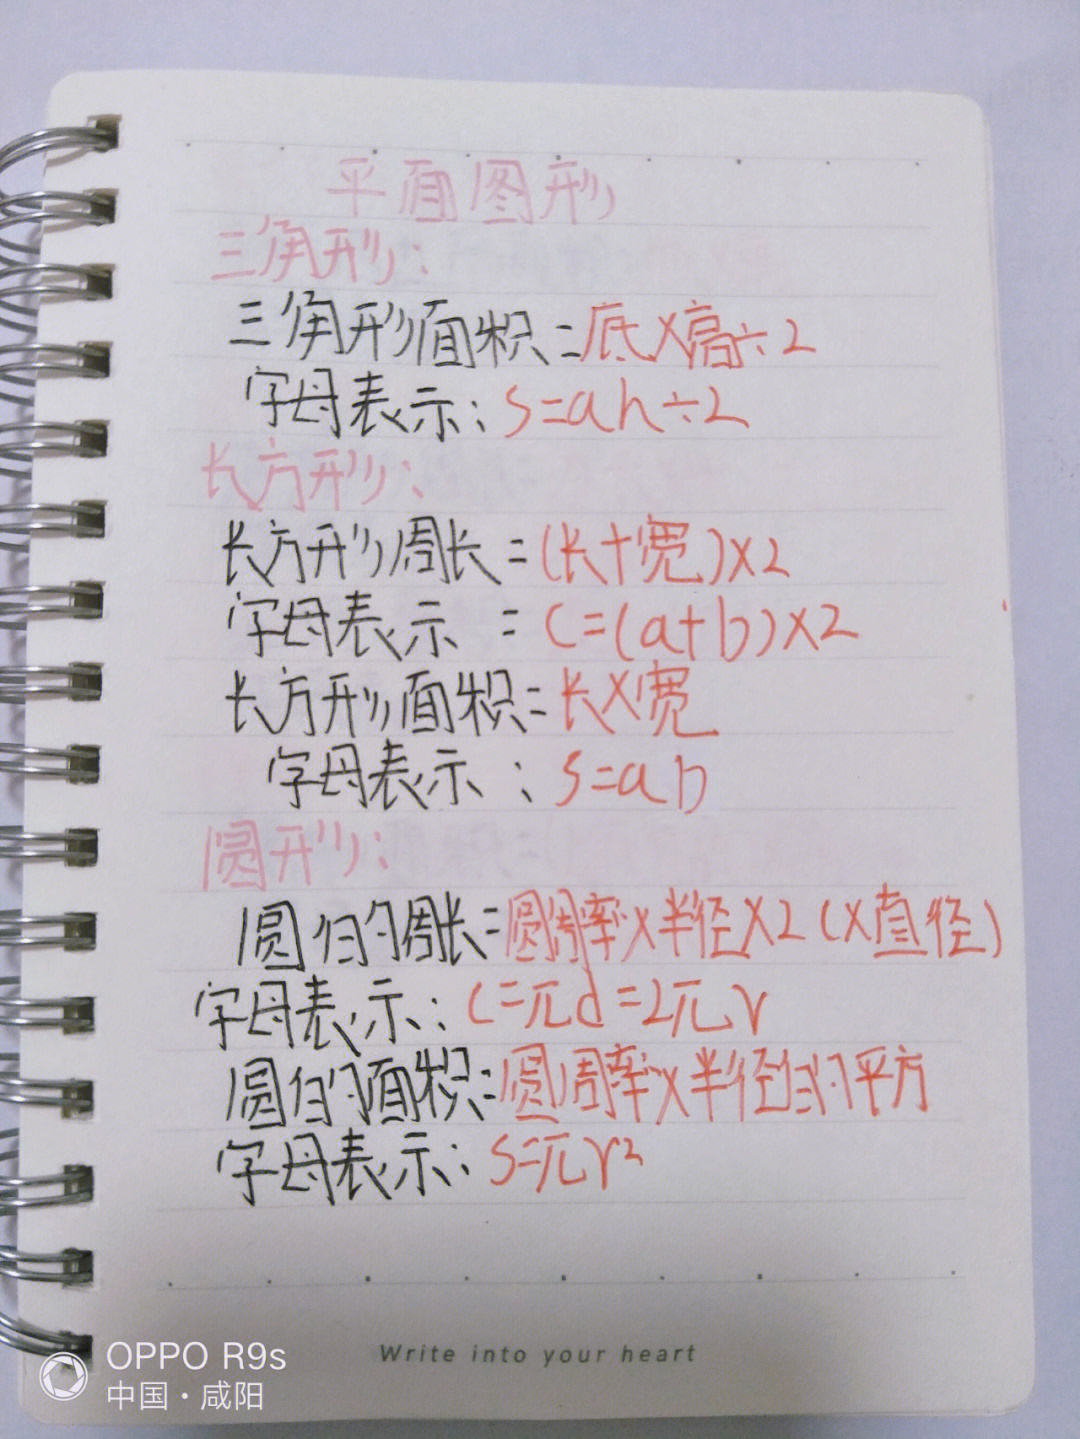 平面图形
三角形:
三角形面积=底×高÷2
字母表示:S=ah÷2
长方形:
长方形周长=(长+宽)×2
字母表示=C=(a+b)×2
长方形面积=长×宽
字母表示:S=ab
圆形:
圆的周长=圆周率×半径×2(×直径)
字母表示:C=πd=2πr
圆的面积=圆周率×半径的平方
字母表示:S=πr²
Write into your heart
OPPO R9s
中国·咸阳